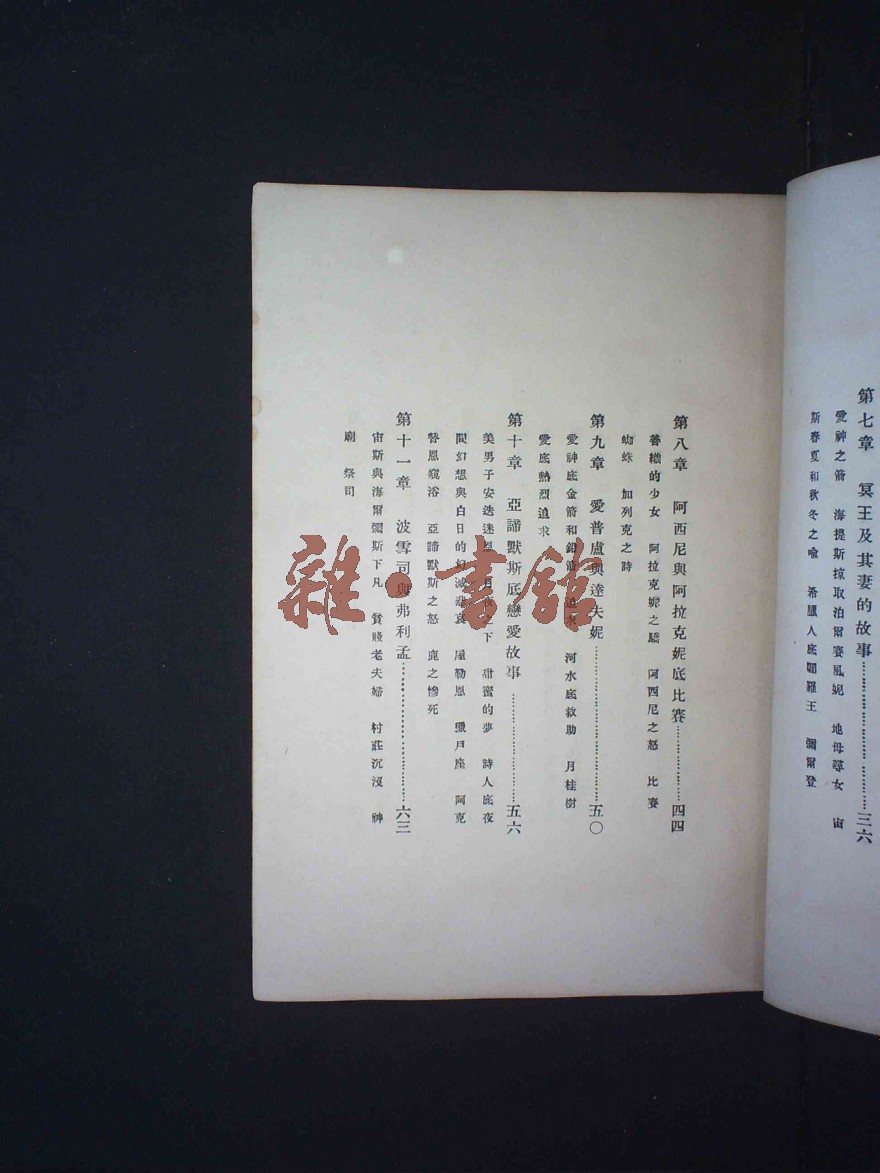 第七章　冥王及其妻的故事……………………三六
愛神之箭　海提斯掠取泊爾賽風妮　地母尋女　宙
斯春夏和秋冬之喩　希臘人底閻羅王　彌爾登
第八章　阿西尼與阿拉克妮底比賽……………四四
善織的少女　阿拉克妮之驕　阿西尼之怒　比賽
蜘蛛　加列克之詩
第九章　愛普盧與達夫妮………………………五〇
愛神底金箭和鉛箭　追求　河水底救助　月桂樹
愛底熱烈追求
第十章　亞諦默斯底戀愛故事…………………五六
美男子安迭迷 月夜之下　甜蜜的夢　詩人底夜
間幻想與白日的幻滅悲哀　屋勒恩　獵戶座　阿克
替恩窺浴　亞諦默斯之怒　鹿之慘死
第十一章　波雪司與弗利孟……………………六三
宙斯與海爾彌斯下凡　貧賤老夫婦　村莊沉沒　神
廟　祭司
雜·書館